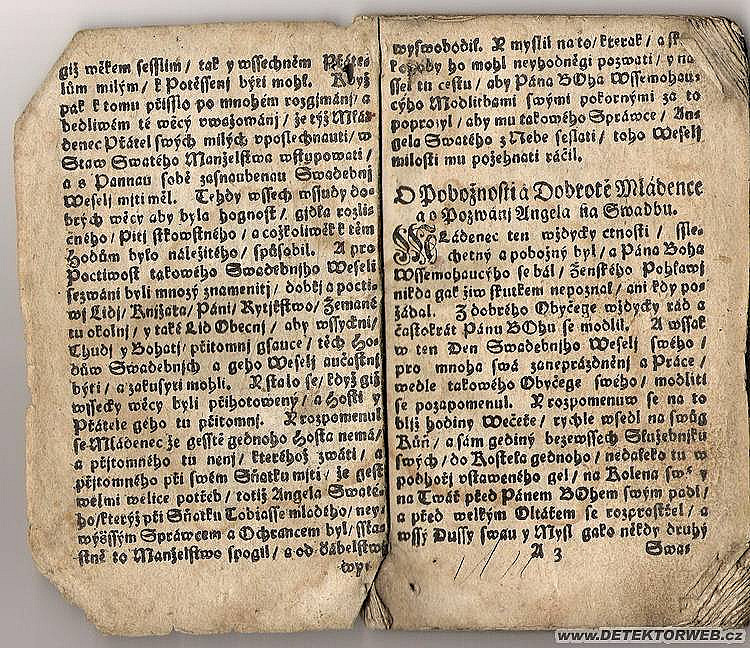 giž wěkem sesslim/ tak y wssechněm Přáte-
lům milým/ k Potěssenj býti mohl. Když
pak k tomu přisslo po mnohém rozgjmánj/ a
bedliwém té wěcý vwažowánj/ že týž Mlá-
denec Přátel swých milých vposlechnauti/ w
Staw Swatého Manželstwa wstypowati/
a s Pannau sobě zasnaubenau Swadebnj
Weselj mjti měl. Tehdy wssech wssudy do-
brých wěcy aby byla hognost/ gjdka rozli-
čného/ Pitj stkwostného/ a cožkoliwěk k těm
Hodům bylo náležitého/ spůsobil. A pro
Poctiwost takowého Swadebnjho Weselj
sezwáni byli mnozý znamenitj/ dobřj a pocti-
wj Lidj/ Knjžata/ Páni/ Rytjřstwo/ Zemané
tu okolnj/ y také Lid Obecnj/ aby wssyckni/
Chudj y Bohatj/ přjtomnj gsauce/ těch Ho-
dům Swadebnjch a geho Weselj aučastnj
býti/ a zakusyti mohli. Y stalo se/ když giž
wssecky wěcy byli přihotoweny/ a Hosti y
Přátelé geho tu přjtomnj. Y rozpomenul
se Mládenec že gesstě gednoho Hosta nemá/
a přjtomného tu nenj/ kteréhož zwáti/ a
přjtomného při swém Sňatku mjti/ že gest
welmi welice potřeb/ totiž Angela Swaté-
ho/ kterýž při Sňatku Tobiasse mladého/ ney-
wyššým Spráwcem a Ochrancem byl/ sska-
stně to Manželstwo spogil/ a od ďábelstwa
wy-
wyswobodil. Y myslil na to/ kterak/ a sk
ho mohl neyhodněgi pozwati/ y na-
ssel tu cestu/ aby Pána BOha Wssemohau-
cýho Modlitbami swými pokornými za to
poprosyl/ aby mu takowého Spráwce/ An-
gela Swatého z Nebe seslati/ toho Weselj
milosti mu požehnati ráčil.
O Pobožnosti a Dobrotě Mládence
a o Pozwánj Angela na Swadbu.
MLádenec ten wždycky ctnostj/ ssle-
chetný a pobožný byl/ a Pána Boha
Wssemohaucýho se bál/ Ženského Pohlawj
nikda gak žiw skutkem nepoznal/ ani kdy po-
žádal. Z dobrého Obyčege wždycky rád a
častokrát Pánu BOhu se modlil. A wssak
w ten Den Swadebnjho Weselj swého/
pro mnoha swá zaneprázdněnj a Práce/
wedle takowého Obyčege swého/ modliti
se pozapomenul. Y rozpomenuw se na to
bljž hodiny Wečeře/ rychle wsedl na swůg
Kůň/ a sám gediný bezewssech Služebnjků
swých/ do Kostela gednoho/ nedaleko tu w
podhořj vstaweného gel/ na Kolena swᵃ y
na Twář před Pánem BOhem swým padl/
a před welkým Oltářem se rozprostřel/ a
wssý Dussý swau y Mysl gako někdy druhý
A 3 Swa-
www.DETEKTORWEB.cz